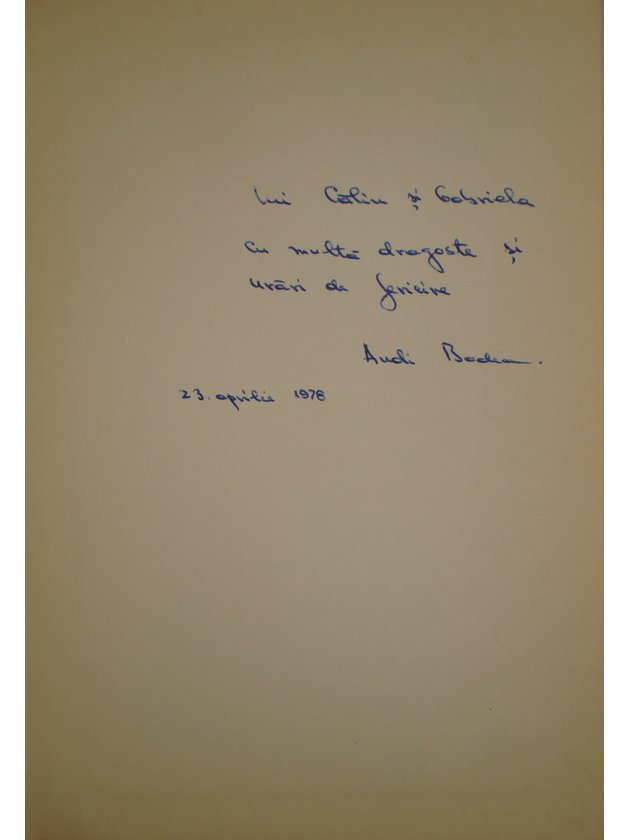 Lui Călin și Gabriela
cu multă dragoste și
urări de fericire
Andi
23. aprilie 1978